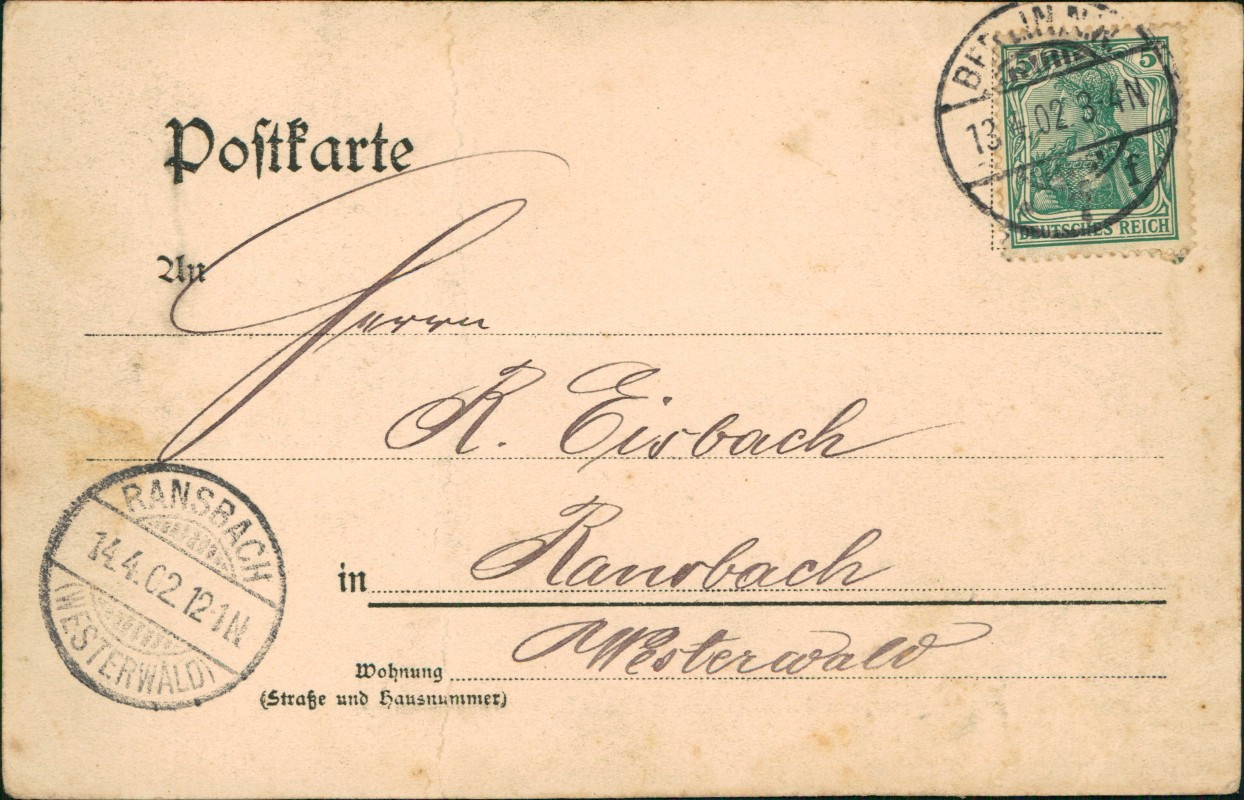 Postkarte
5
BERLIN N.
13.4.02 3-4N
f
DEUTSCHES REICH
An
Herrn
R. Eisbach
in Ransbach
Westerwald
Wohnung
(Straße und Hausnummer)
RANSBACH
14.4.02.12-1N.
(WESTERWALD)